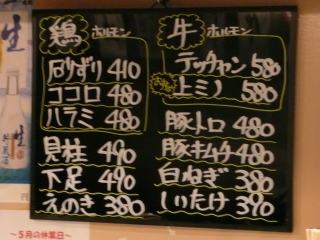 鶏 ホルモン
砂ずり 410
ココロ 480
ハラミ 480
見柱 490
下足 490
えのき 380
牛 ホルモン
テッチャン 580
上ミノ 580
豚トロ 480
豚キムチ 480
白ねぎ 380
しいたけ 390
～5月の休業日～